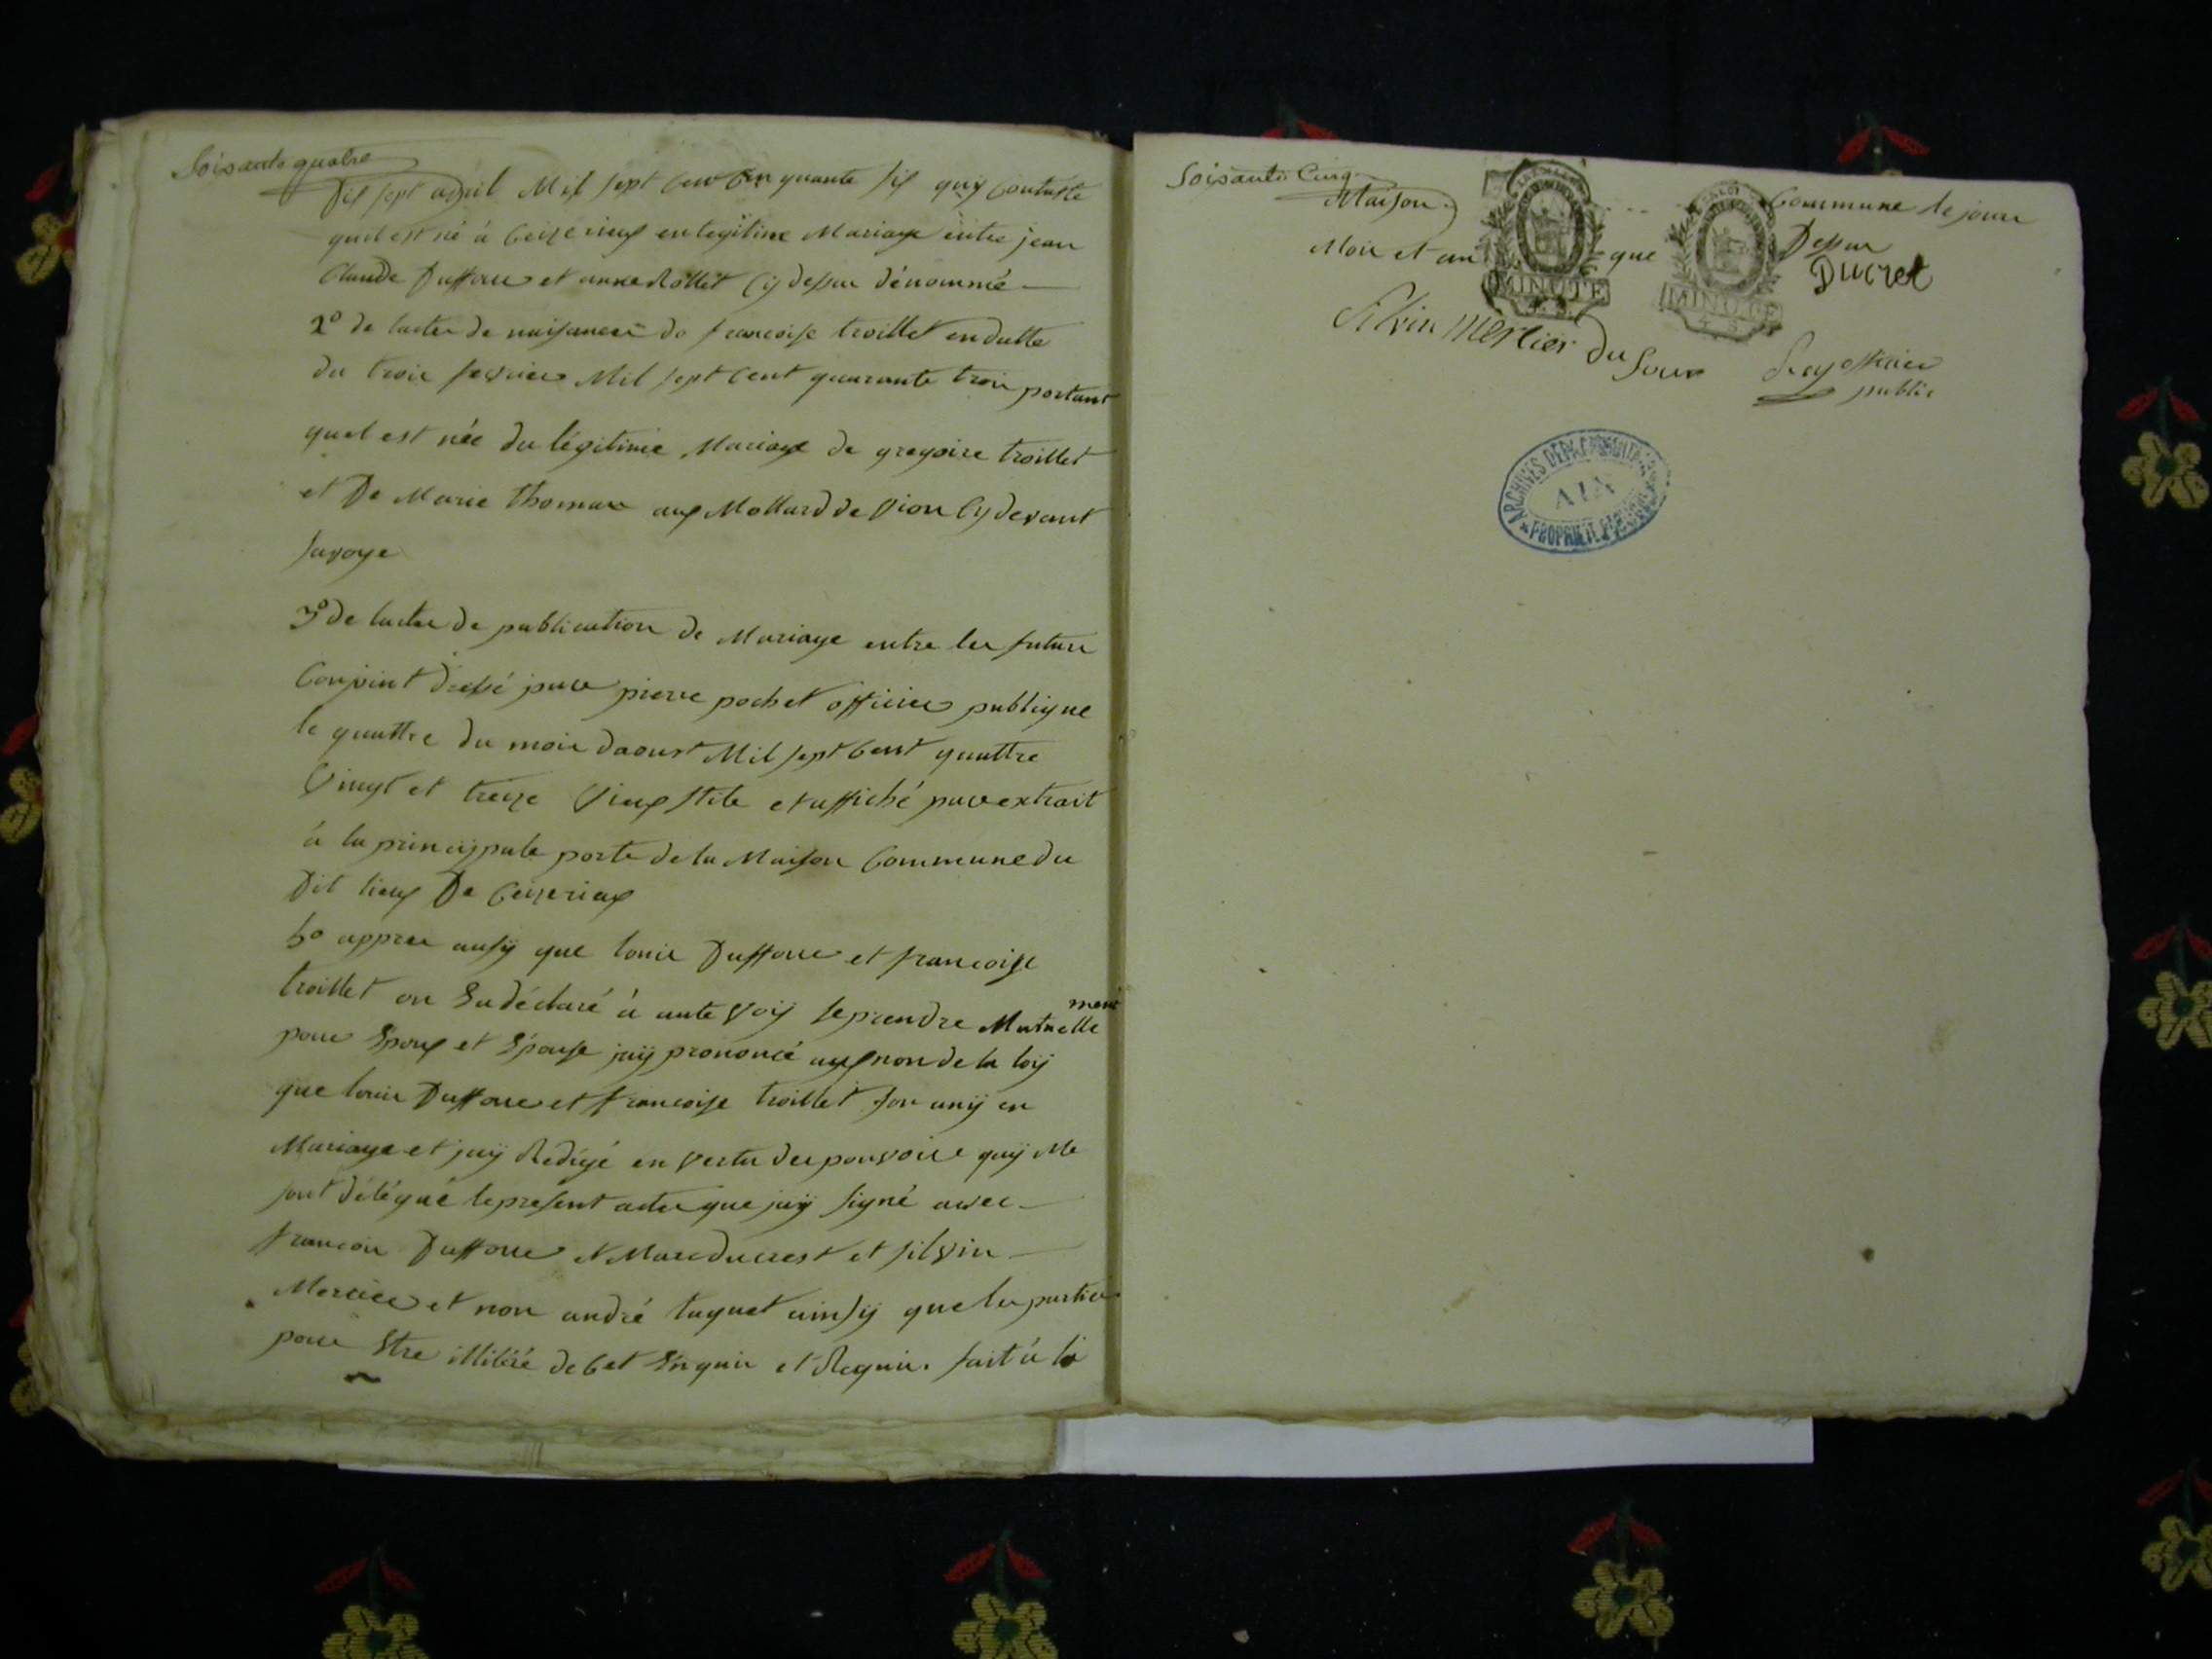 Soisante quatre
Dix sept avril Mil sept Cent Cinquante six quÿ Contaste
quil est né à Ceizerieux en legitime Mariage entre jean
Claude Duffour et anne Rollet Cy dessu dénommé
2º de lacte de naissance de francoise troillet en datte
du trois fevrier Mil sept Cent quarante trois portant
quel est née du légitime Mariage de gregoire troillet
et De Marie thomas aux Mollard de Vion Cy devant
Savoye
3º de lacte de publication de Mariage entre les futurs
Conjoint dressé pare pierre pochet officier publique
le quattre du mois daoust Mil sept Cent quattre
Vingt et treize Vieux stile et affiché pare extrait
à la principale porte de la Maison Commune du
Dit lieux De Ceizerieux
apprer ausÿ que louis Duffour et francoise
troillet on déclaré à aute Voiÿ se prendre Mutuelle
ment
pour Epoux et Epouse jaÿ prononcé aux non de la loÿ
que louis Duffour et francoise troillet son unÿ en
Mariage et jaÿ Redigé en Vertu des pouvoirs quÿ Me
sont délégué le present acte que jaÿ signé avec
francois Duffour Marc ducrest et silvin
Mercier et non andré taquet ainsÿ que les parties
pour Etre illitéré de Cet Enquis et Requis. fait à la
Soisante Cinq
Maison Commune le jour
Mois et an que Dessus
MINUTE
MINUTE
4 S
Ducret
Silvin Mercier
Du four
officier
public
ARCHIVES DEPARTEMENTALES
AIN
PROPRIETE PUBLIQUE